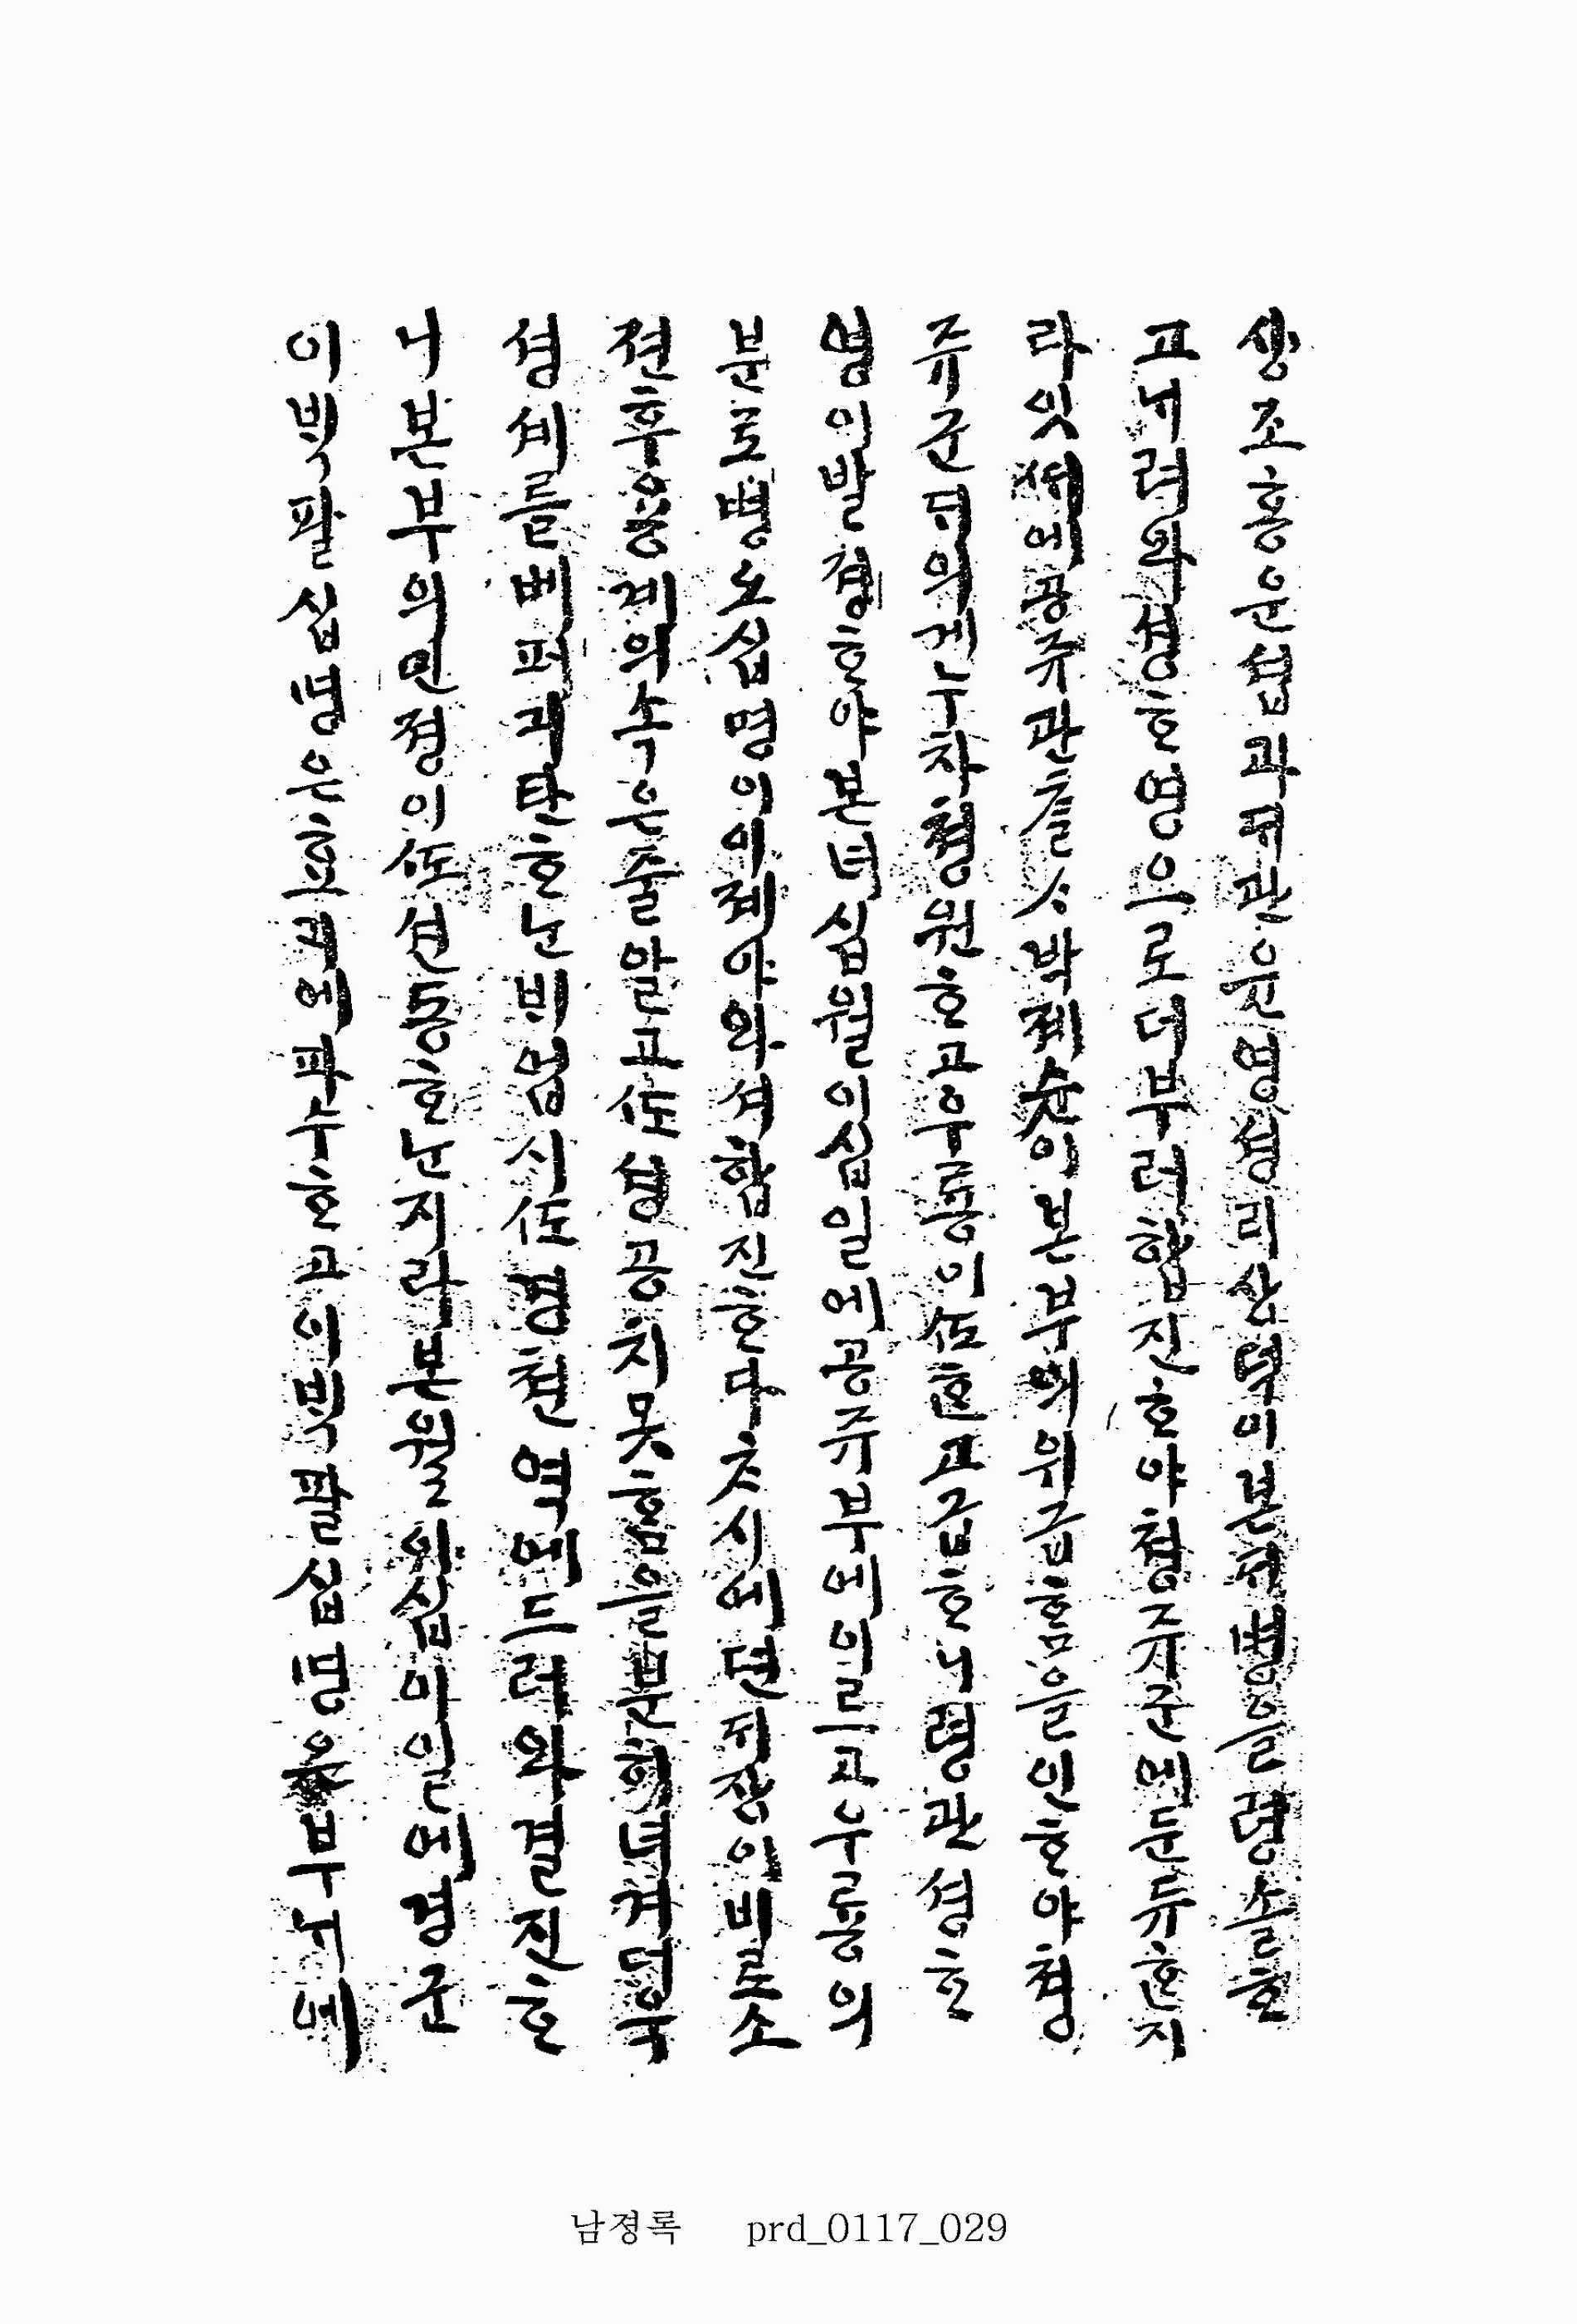 생조흥운셥과ᄃᆡ관윤영셩리상덕이본ᄃᆡ병을령솔ᄒᆞ
고ᄂᆡ려와셩ᄒᆞ영으로더부러합진ᄒᆞ야쳥쥬군에둔듀ᄒᆞᆫ지
라잇ᄯᅢ에공쥬관찰ᄉᆞ박졔슌이본부의위급ᄒᆞᆷ을인ᄒᆞ야쳥
쥬군ᄃᆡ의게누차쳥원ᄒᆞ고우룡이ᄯᅩᄒᆞᆫ고급ᄒᆞ니령관셩ᄒᆞ
영이발졍ᄒᆞ야본녀십월이십일에공쥬부에이르고우룡의
분로병노십명이이졔야와셔합진ᄒᆞ다ᄎᆞ시에뎐ᄃᆡ장이비로소
젼후융계의속은줄알고ᄯᅩ셩공치못ᄒᆞᆷ을분히녀겨더욱
셩셰를베퍼괴탄ᄒᆞᄂᆞᆫᄇᆡ업시ᄯᅩ경쳔역에드러와결진ᄒᆞ
니본부의민졍이ᄯᅩ션동ᄒᆞᄂᆞᆫ지라본월이십이일에경군
이ᄇᆡᆨ팔십명은효괴에파수ᄒᆞ고이ᄇᆡᆨ팔십명은부ᄂᆡ에
남졍록 prd_0117_029